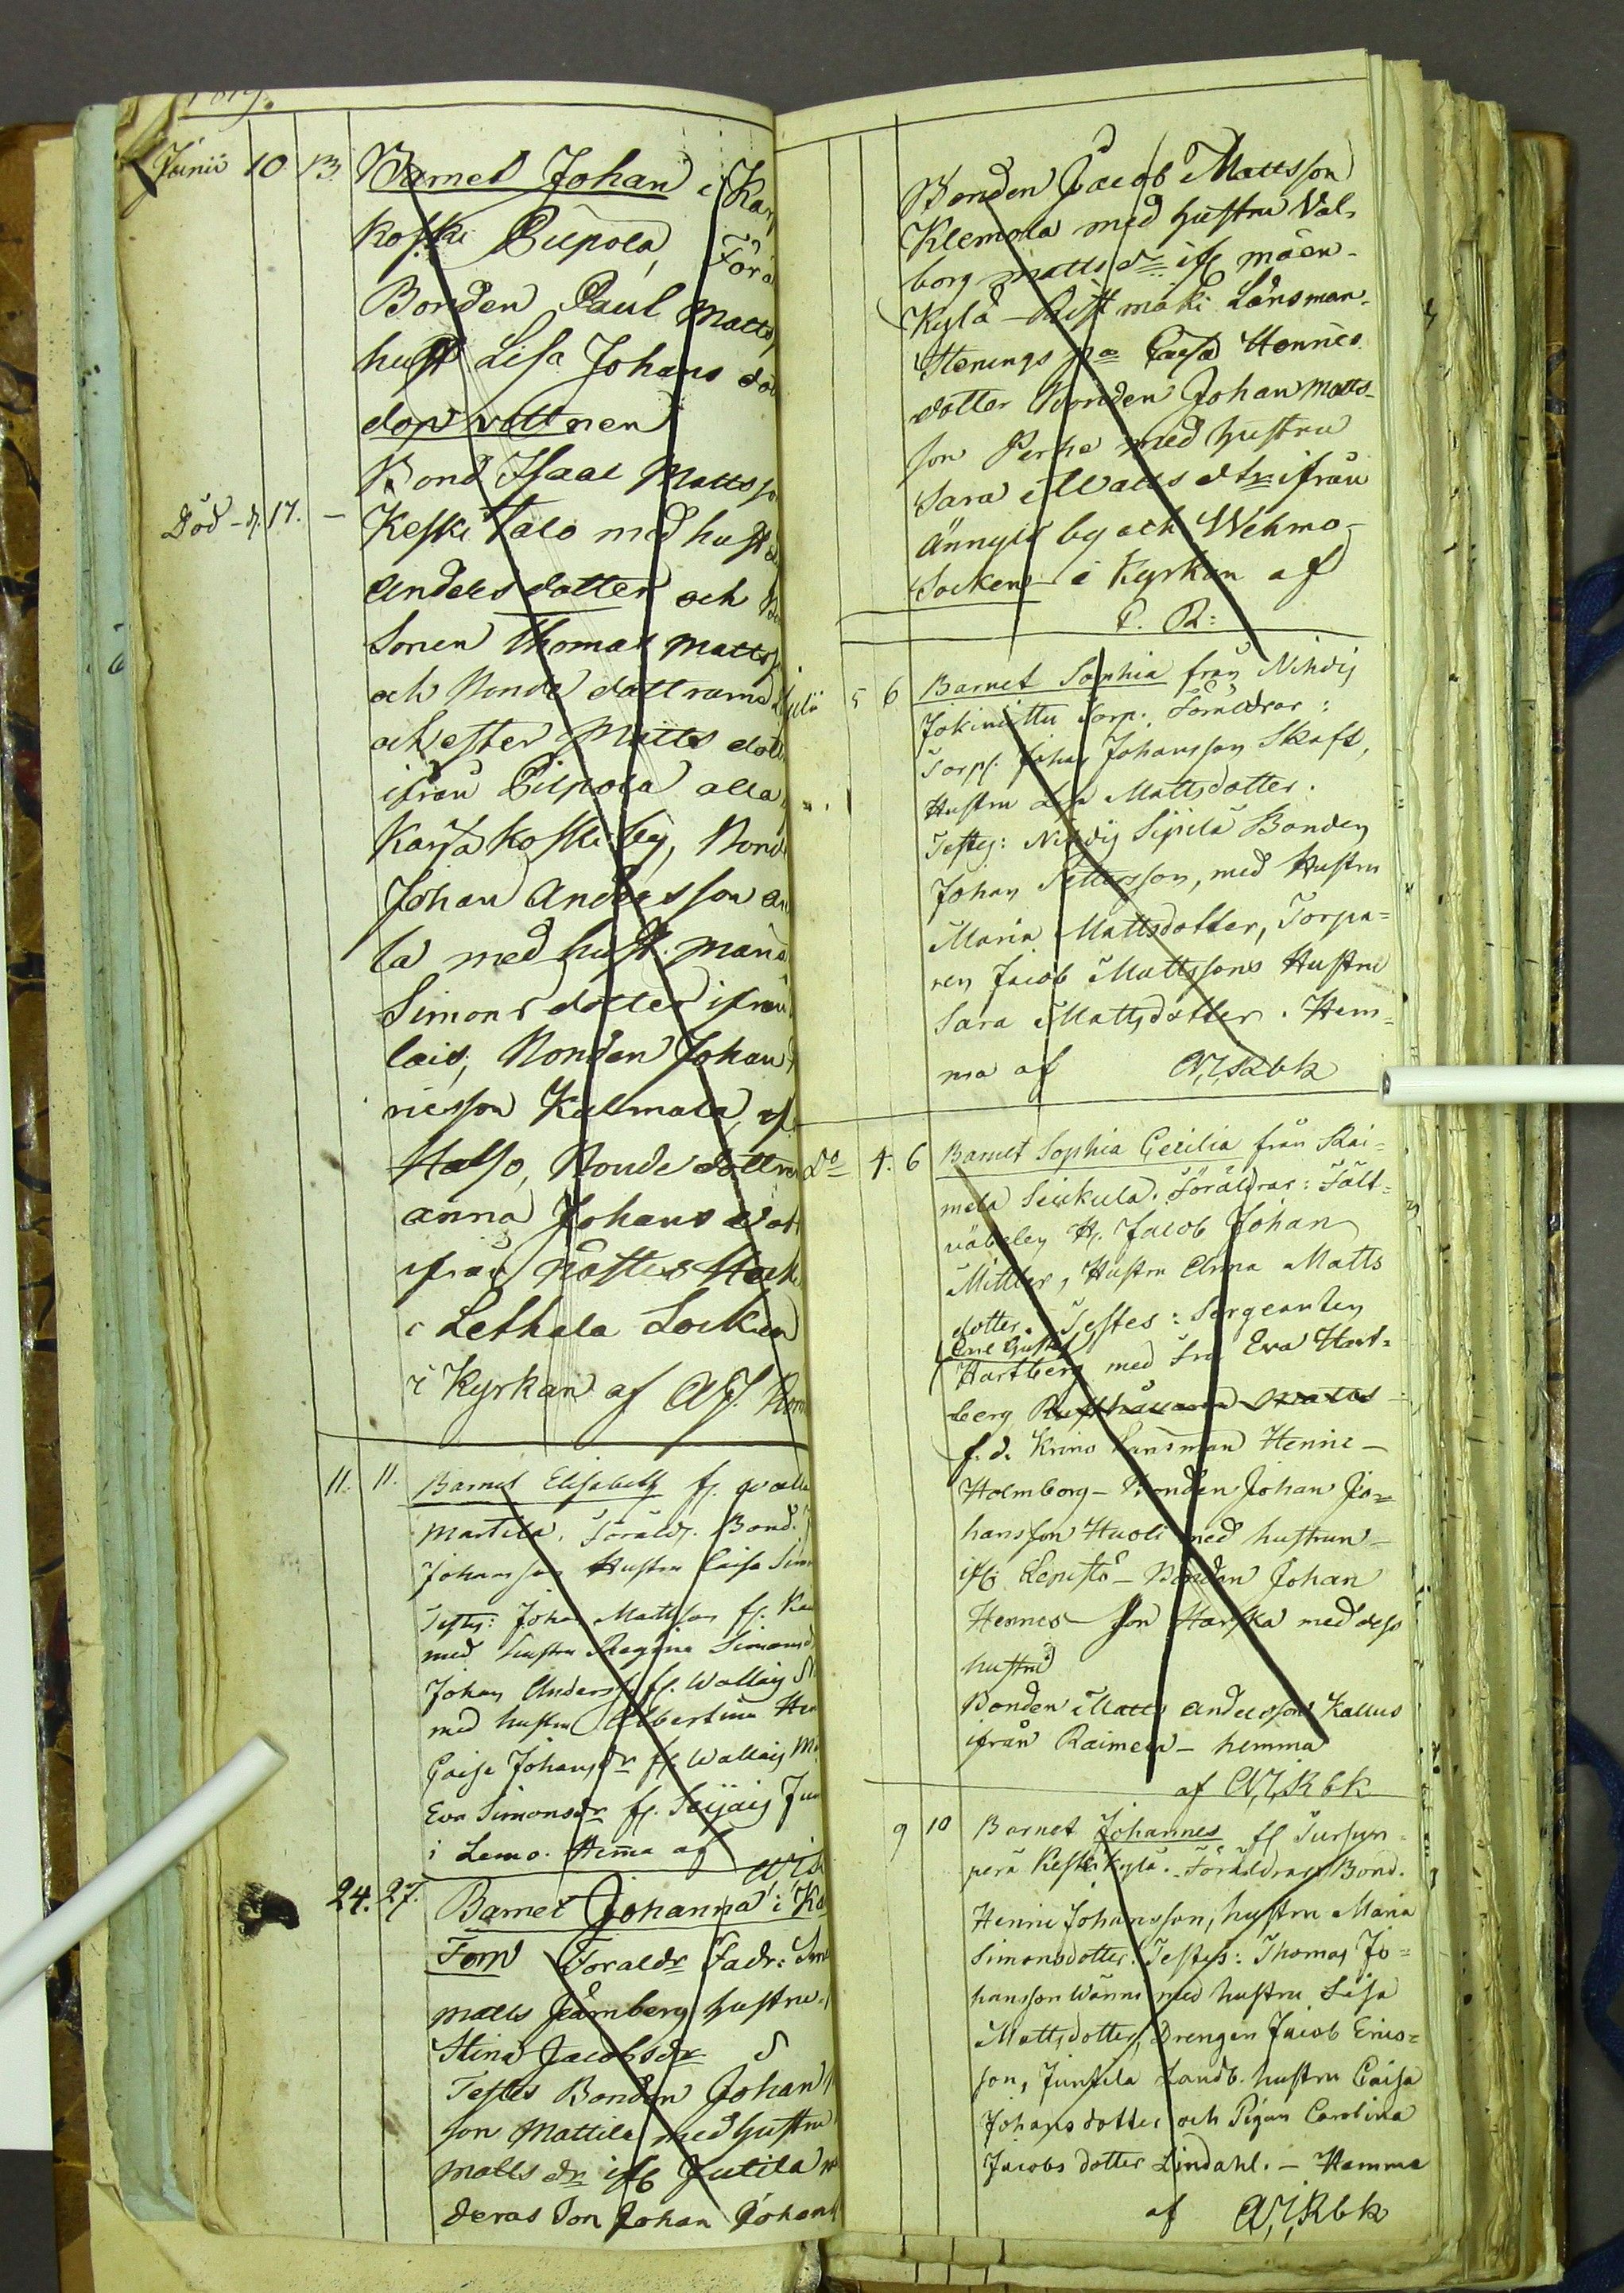 1819.
Junii 10 13. Barnet Johan i Kar
koski Piipola, Förä
Bonden Paul Matts
hust Lisa Johans dot
dop vittnen
Bond Isaac Mattsso
Död - d. 17. - Keski talo med hust
Anders dotter och Bo
Sonen Thomas Matts
och Bonde dottrarna
och ester Matts dot
ifrån Piipola alla
Karjakoski by, Bond
Johan Andersson
la med hust. Maria
Simons dotter ifrån
lais, Bonden Johan
ricsson Kulmala, if
Halso, Bonde dottren
anna Johans dot
ifrån
i Lethala Socken
i Kyrkan af
11. 11. Barnet Elisabeth fr.
Martila. Föräldr. Bond.
Johansson Hustru Caisa Sim
Testes: Johan Mattsson fr.
med hustru Regina Simonsd
Johan Anderss. fr. Wallais
med hustru Albertina Hen
Caisa Johansdr fr. Wallais
Eva Simonsdr fr.
i Lemo. Hemma af
24. 27. Barnet Johanna i
Torp Föraldr Fadr:
matts Jernberg hustru
Stina Jacobsdr
Testes Bonden Johan
son Mattila med hustru
matts dr ifr Jutila
deras Son Johan Johan
Bonden Jacob Mattsson
Klemola med hustru Val-
borg matts dr ifr mäen-
Kylä - Ristmäki Länsman-
Henings Caisa Hennes
dotter Bonden Johan Matts-
son Perhe med hustru
Sara Matts dtr ifrån
Ännylä by och Wehmo-
Socken - i Kyrkan af
C. R:
5 6 Barnet Sophia från Nihdis
Jokinitty Torp. Föräldrar:
Torp. Johan Johansson Skaft,
Hustru Lisa Mattsdotter.
Testes: Nihdis Sipilä Bonden
Johan Pettersson, med Hustru
Maria Mattsdotter, Torpa=
ren Jacob Mattssons Hustru
Sara Mattsdotter. Hem=
ma af
Do 4. 6 Barnet Sophia Cecilia från Rai=
mela Seikula. Föräldrar: Fält=
väbelen H. Jacob Johan
Mittler, Hustru Anna Matts
dotter. Testes: Sergeanten
Carl Gustaf
Hartberg med Fru Eva Hart=
berg
f. d. Krono Länsman Henric -
Holmberg - Bonden Johan Jo=
hansson Huoli med hustrun -
ifr: Lepistö - Bonden Johan
Hennes - Son Harska med dess
hustru
Bonden Matts Anderssons Kallus
ifrån Raimela - hemma
af
9 10 Barnet Johannes fr Tursun-
perä Keskikylä. Föräldrar Bond.
Henric Johansson, hustru Maria
Simonsdotter. Testes: Thomas Jo=
hansson Wänni med hustru Lisa
Mattsdotter, Drengen Jacob Erics=
son, Juntila Landb. hustru Caisa
Johansdotter och Pigan Carolina
Jacobs dotter Lindahl. - Hemma
af